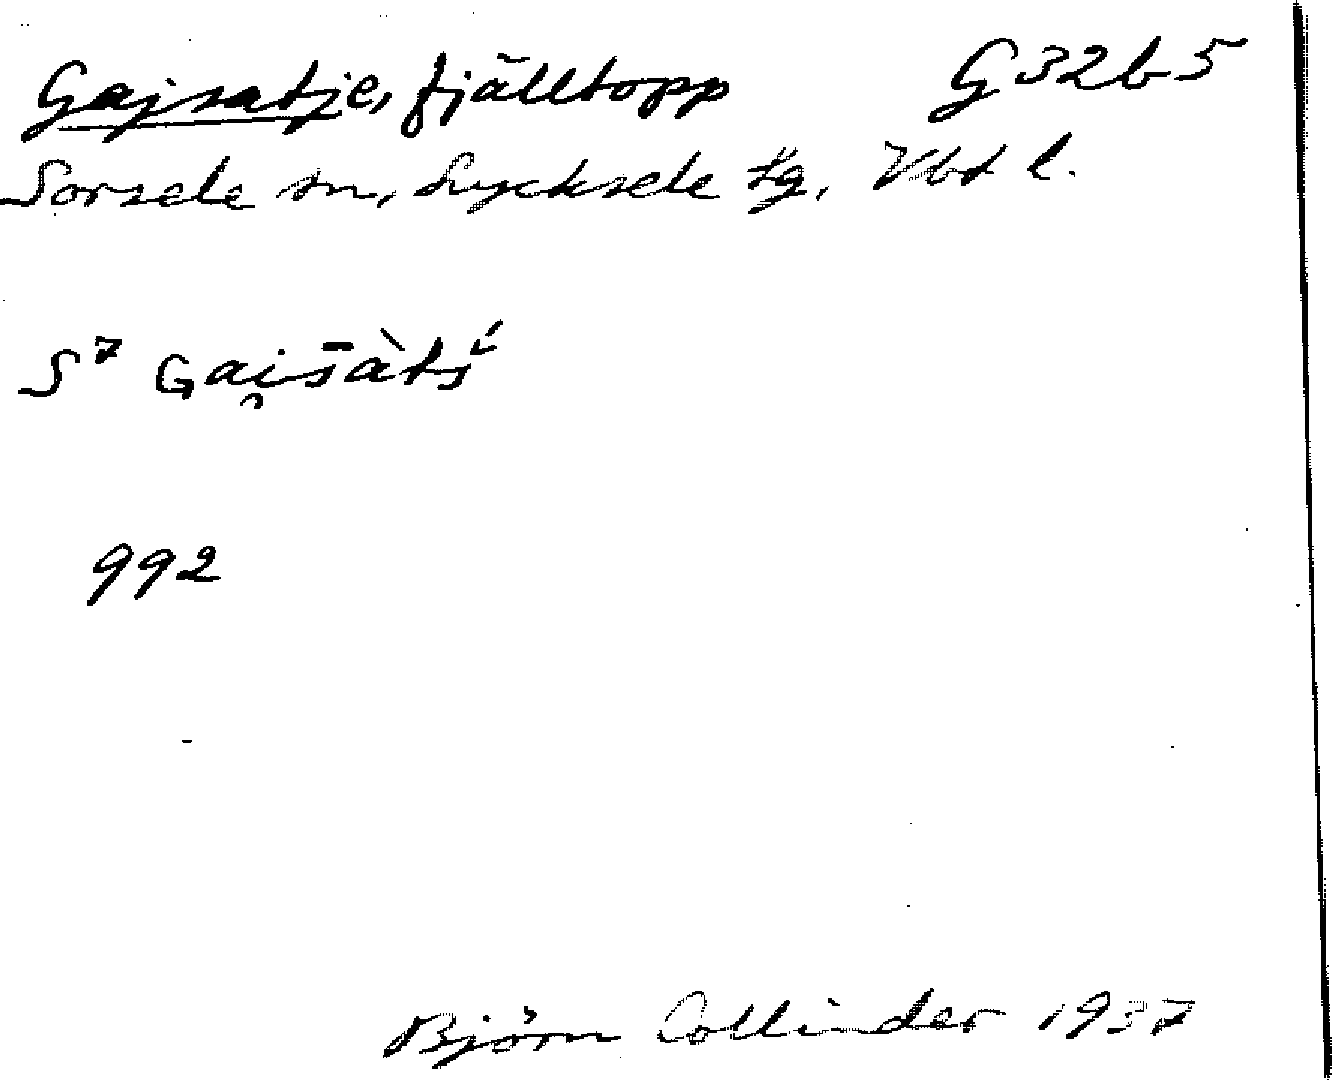 Gajsatje, fjälltopp G32b5
Sorsele sn, Lycksele tg, Vbt l.
S⁷ Gai̯s̄àtś
992
Björn Collinder 1937